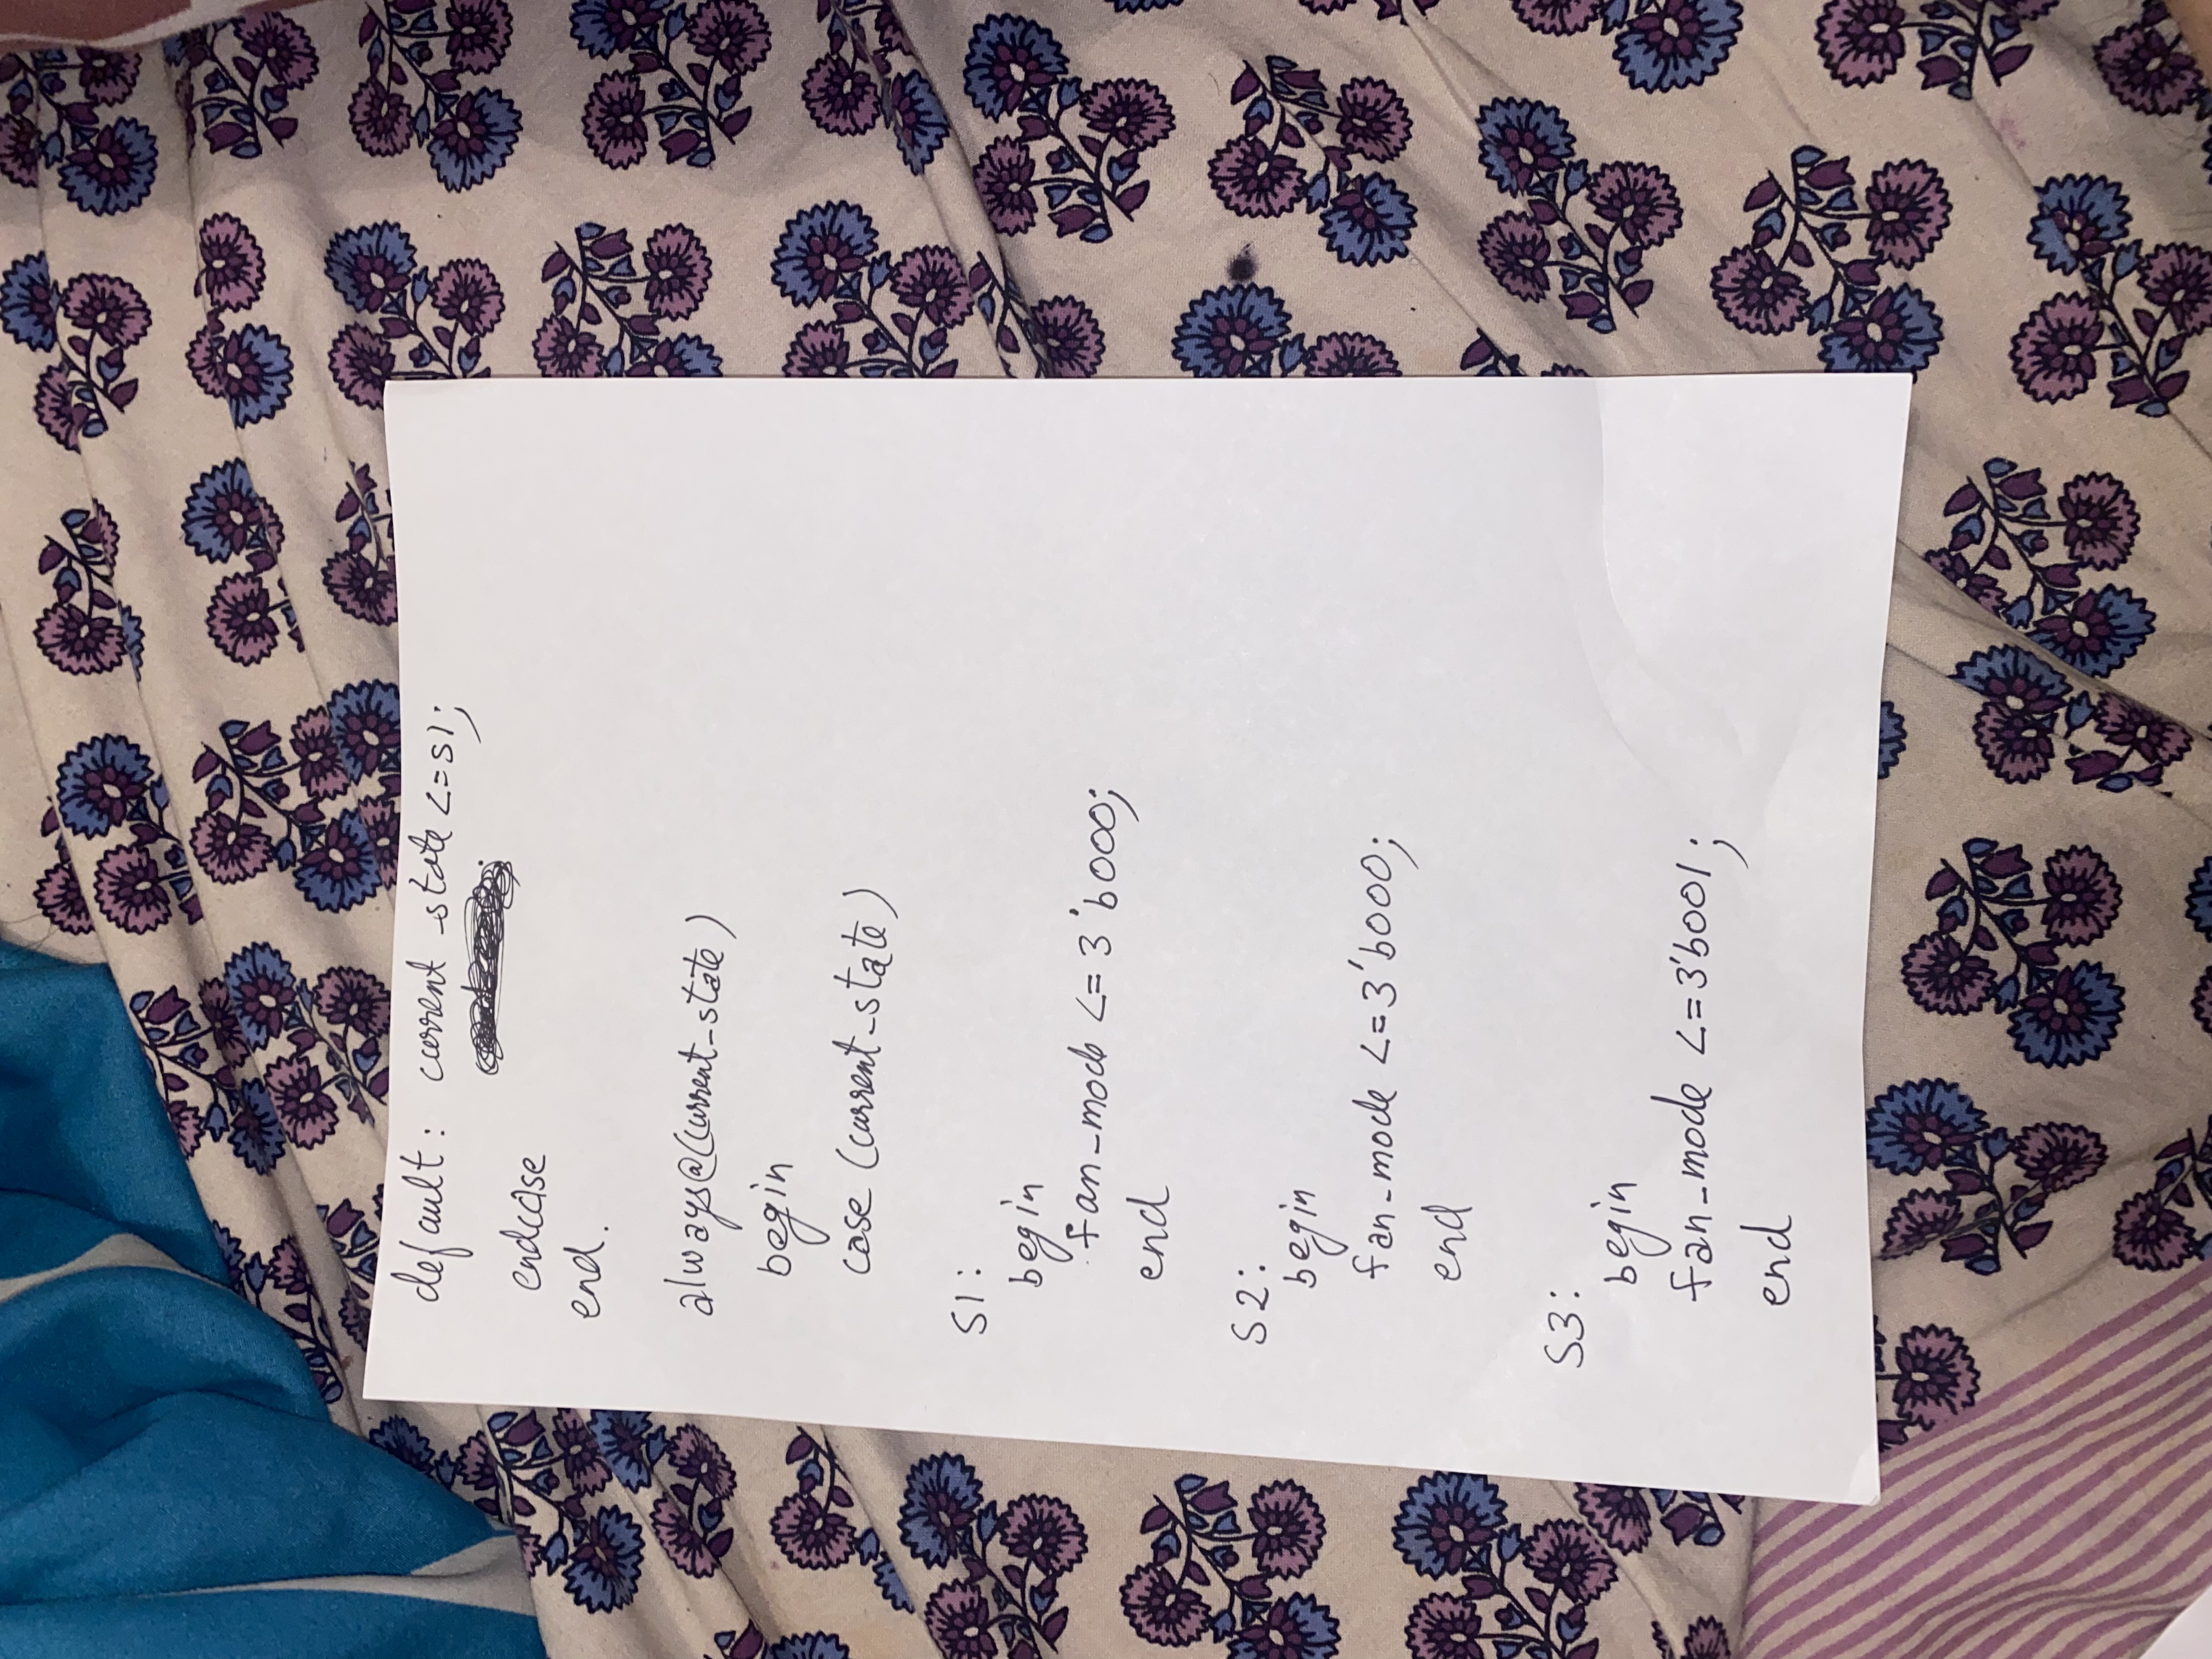 default: current_state <= S1;
endcase
end.
always@(current_state)
begin
case (current_state)
S1:
begin
fan_mode <= 3'b000;
end
S2:
begin
fan_mode <= 3'b000;
end
S3:
begin
fan_mode <= 3'b001;
end